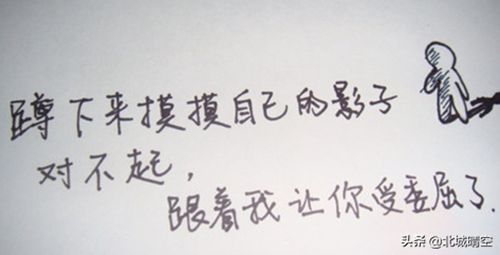 蹲下来摸摸自己的影子
对不起，
跟着我让你受委屈了.
头条@北城晴空